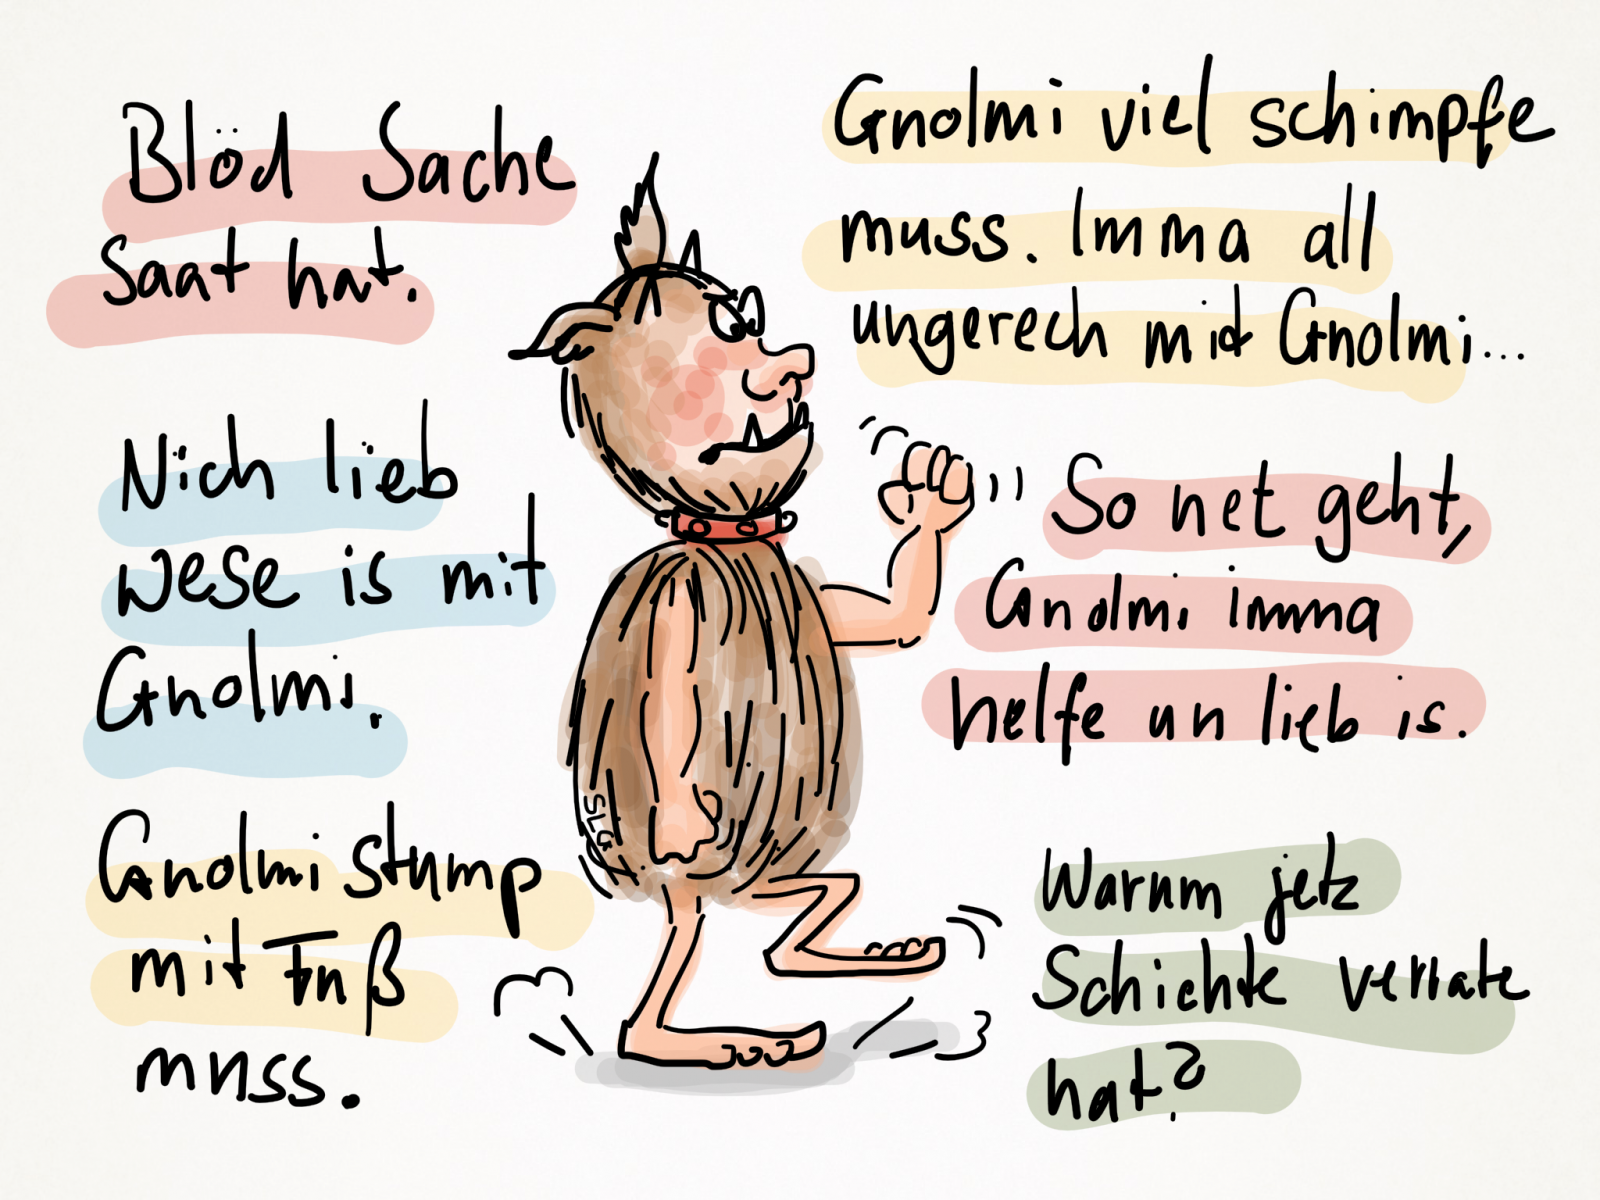 Blöd Sache
saat hat.
Nich lieb
wese is mit
Gnolmi.
Gnolmi stump
mit Fuß
muss.
Gnolmi viel schimpfe
muss. Imma all
ungerech mit Gnolmi...
So net geht,
Gnolmi imma
helfe un lieb is.
Warum jetz
Schichte verrate
hat?
SLGI